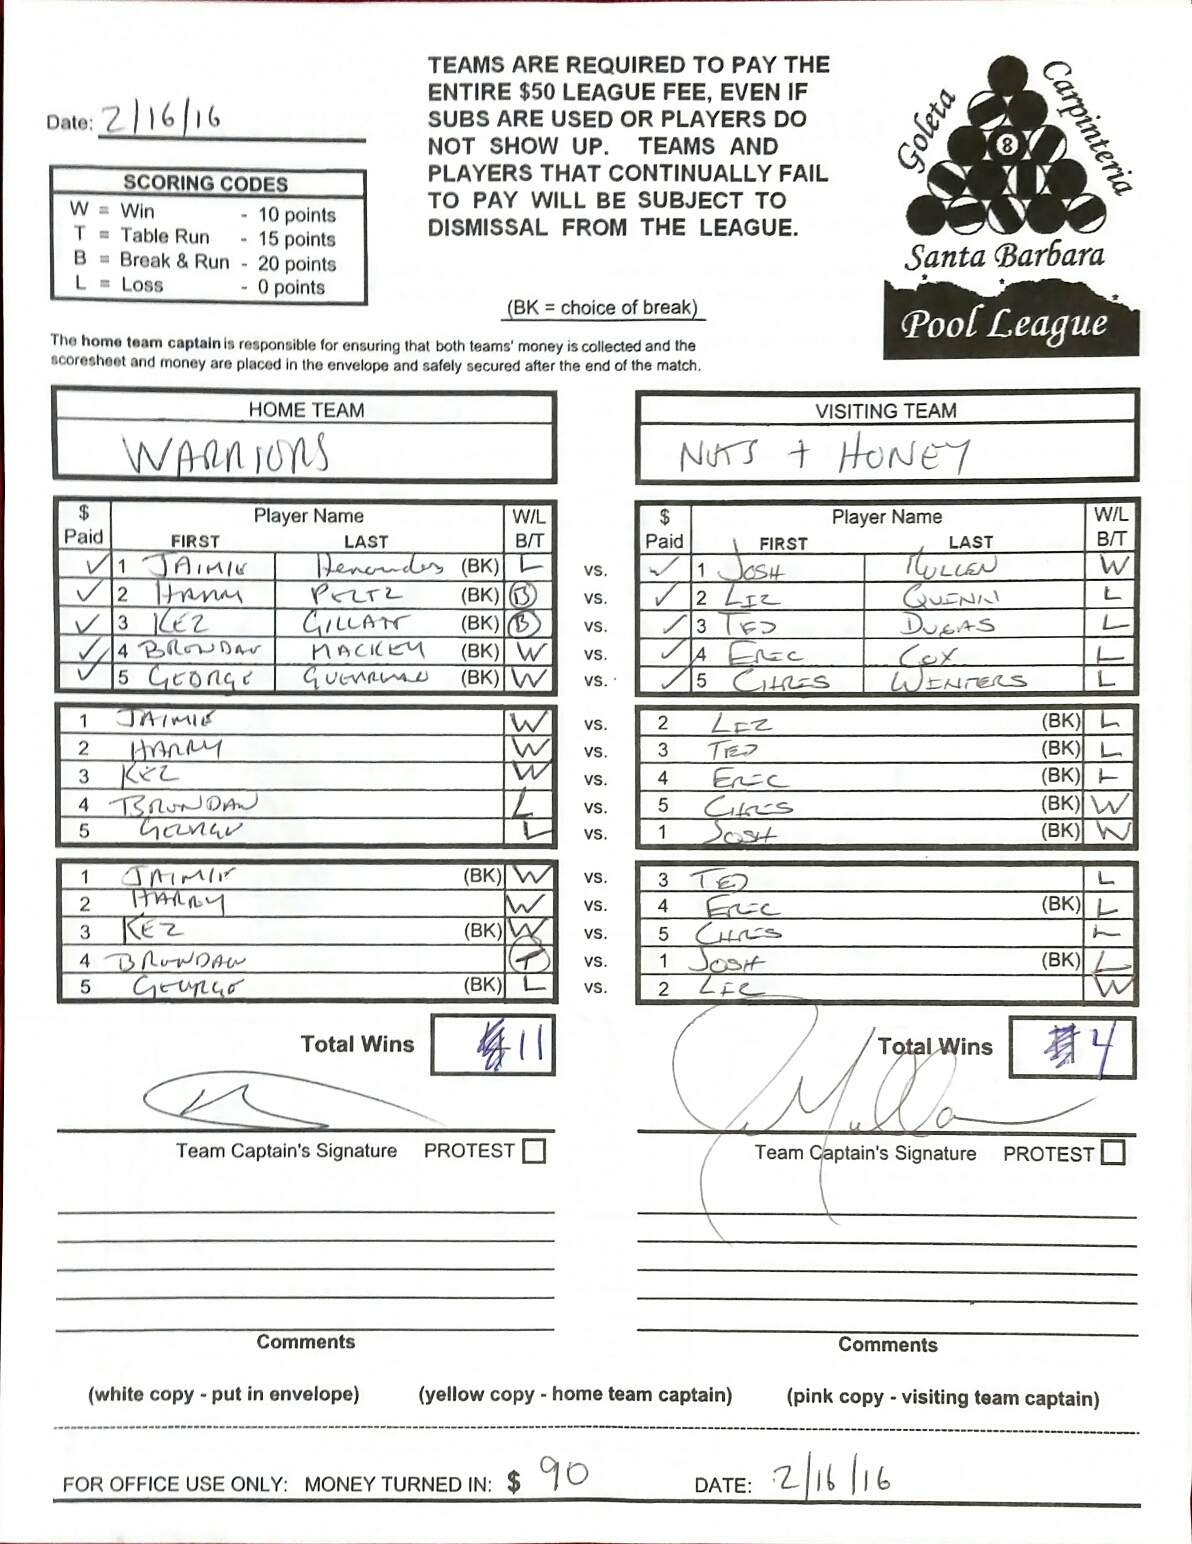 Date: 2/16/16
TEAMS ARE REQUIRED TO PAY THE
ENTIRE $50 LEAGUE FEE, EVEN IF
SUBS ARE USED OR PLAYERS DO
NOT SHOW UP. TEAMS AND
PLAYERS THAT CONTINUALLY FAIL
TO PAY WILL BE SUBJECT TO
DISMISSAL FROM THE LEAGUE.
Goleta
Carpinteria
8
Santa Barbara
Pool League
SCORING CODES
W = Win - 10 points
T = Table Run - 15 points
B = Break & Run - 20 points
L = Loss - 0 points
(BK = choice of break)
The home team captain is responsible for ensuring that both teams' money is collected and the
scoresheet and money are placed in the envelope and safely secured after the end of the match.
HOME TEAM VISITING TEAM
WARRIORS NUTS + HONEY
$ Player Name W/L $ Player Name W/L
Paid FIRST LAST B/T Paid FIRST LAST B/T
✓ 1 JAIMIE (BK) L vs. ✓ 1 JOSH MULLEN W
✓ 2 HARRY PELTZ (BK) B vs. ✓ 2 LIZ QUINN L
✓ 3 KEZ (BK) B vs. ✓ 3 TED DUGAS L
✓ 4 BRENDAN MACKEY (BK) W vs. ✓ 4 ERIC COX L
✓ 5 GEORGE (BK) W vs. ✓ 5 CHRIS WINTERS L
1 JAIMIE W vs. 2 LIZ (BK) L
2 HARRY W vs. 3 TED (BK) L
3 KEZ W vs. 4 ERIC (BK) L
4 BRENDAN L vs. 5 CHRIS (BK) W
5 GEORGE L vs. 1 JOSH (BK) W
1 JAIMIE (BK) W vs. 3 TED L
2 HARRY W vs. 4 ERIC (BK) L
3 KEZ (BK) W vs. 5 CHRIS L
4 BRENDAN T vs. 1 JOSH (BK) L
5 GEORGE (BK) L vs. 2 LIZ W
Total Wins 11 Total Wins 4
Team Captain's Signature PROTEST Team Captain's Signature PROTEST
Comments Comments
(white copy - put in envelope) (yellow copy - home team captain) (pink copy - visiting team captain)
FOR OFFICE USE ONLY: MONEY TURNED IN: $ 90 DATE: 2/16/16